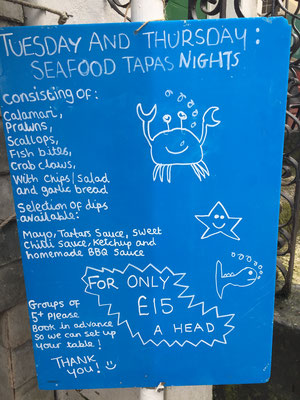 TUESDAY AND THURSDAY:
SEAFOOD TAPAS NIGHTS
consisting of:
Calamari,
Prawns,
Scallops,
Fish bites,
Crab claws,
With Chips/Salad
and garlic bread
Selection of dips
available:
Mayo, Tartars Sauce, Sweet
Chilli Sauce, Ketchup and
homemade BBQ Sauce
FOR ONLY
£15
A HEAD
Groups of
5+ Please
Book in advance
so we can set up
your table!
THANK
YOU!